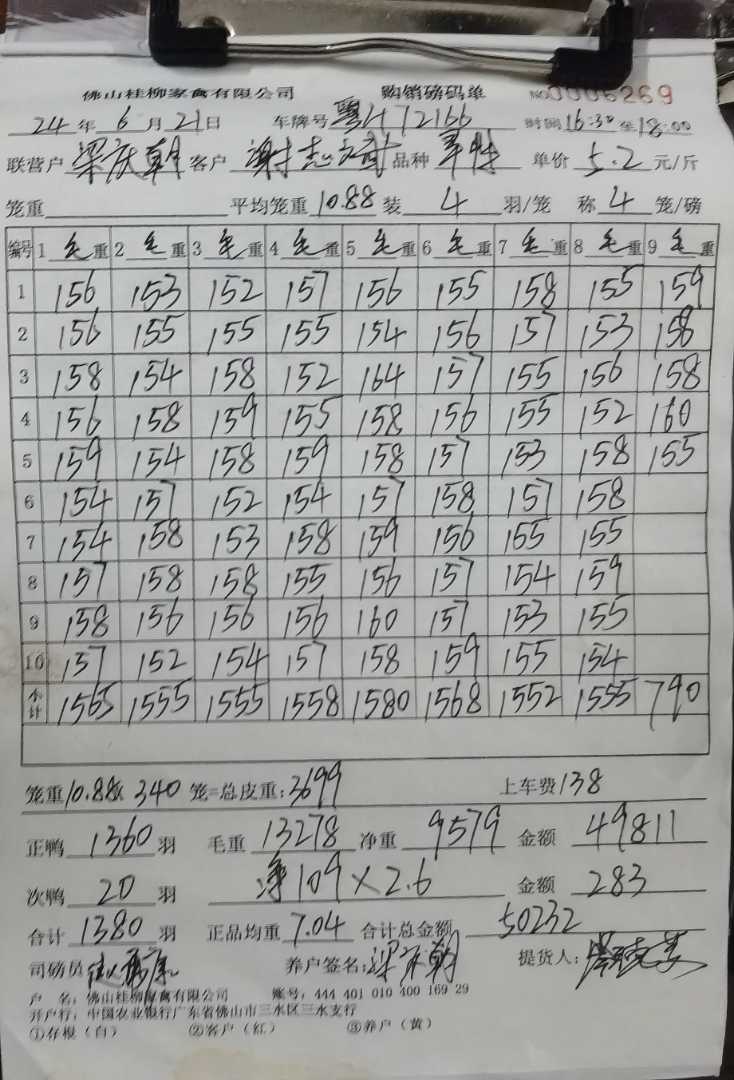 佛山桂柳家禽有限公司 购销磅码单 NO 0006269
24 年 6 月 21 日 车牌号 粤H72166 时间 16:30 至 18:00
联营户 梁庆朝 客户 品种 单价 5.2 元/斤
笼重 平均笼重 10.88 装 4 羽/笼 称 4 笼/磅
编号 1 毛重 2 毛重 3 毛重 4 毛重 5 毛重 6 毛重 7 毛重 8 毛重 9 毛重
1 156 153 152 157 156 155 158 155 159
2 156 155 155 155 154 156 157 153 158
3 158 154 158 152 164 157 155 156 158
4 156 158 159 155 158 156 155 152 160
5 159 154 158 159 158 157 153 158 155
6 154 157 152 154 157 158 157 158
7 154 158 153 158 159 156 155 155
8 157 158 158 155 156 157 154 159
9 158 156 156 156 160 157 153 155
10 157 152 154 157 158 159 155 154
小计 1565 1555 1555 1558 1580 1568 1552 1555 790
笼重 10.88x 340 笼=总皮重: 3699 上车费 138
正鸭 1360 羽 毛重 13278 净重 9579 金额 49811
次鸭 20 羽 净109×2.6 金额 283
合计 1380 羽 正品均重 7.04 合计总金额 50232
司磅员 养户签名: 梁庆朝 提货人:
户 名: 佛山桂柳家禽有限公司 账号: 444 401 010 400 169 29
开户行: 中国农业银行广东省佛山市三水区三水支行
①存根(白) ②客户(红) ③养户(黄)